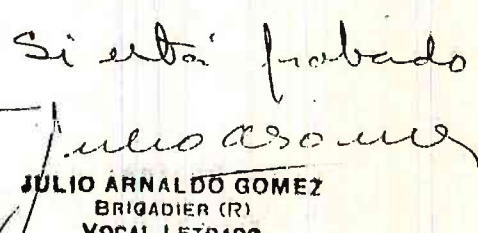 Si está probado
Julio A Gomez
JULIO ARNALDO GOMEZ
BRIGADIER (R)
VOCAL LETRADO